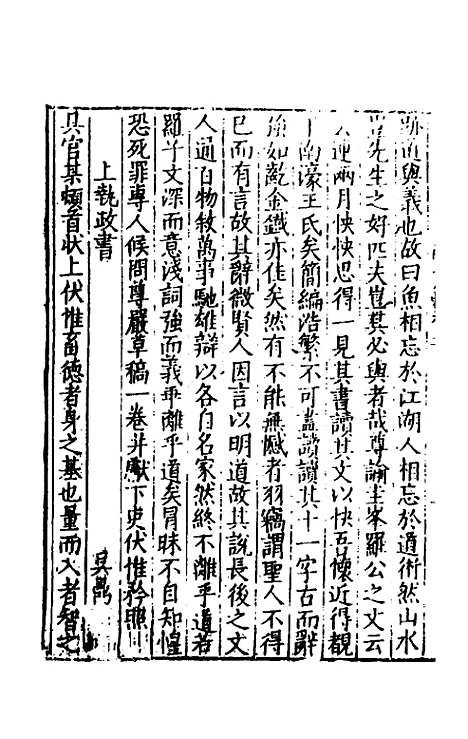 與義也故曰魚相忘於江湖人相忘於道術然山水
先生之好匹夫豈其必與者哉尊論圭峯羅公之文云
連兩月怏怏思得一見其書讀其文以快吾懷近得覩
濠王氏矣簡編浩繁不可盡讀讀其十一字古而辭
如乾金鐵亦佳矣然有不能無憾者羽竊謂聖人不得
已而有言故其辭微賢人因言以明道故其說長後之文
人通百物敘萬事馳雄辯以各自名家然終不離乎道若
羅子文深而意淺詞強而義乖離乎道矣冒昧不自知惶
恐死罪專人候問尊嚴草稿一卷并獻下史伏惟矜照
上執政書
吳鼎
具官某頓首狀上伏惟畜德者身之基也量而入者智之